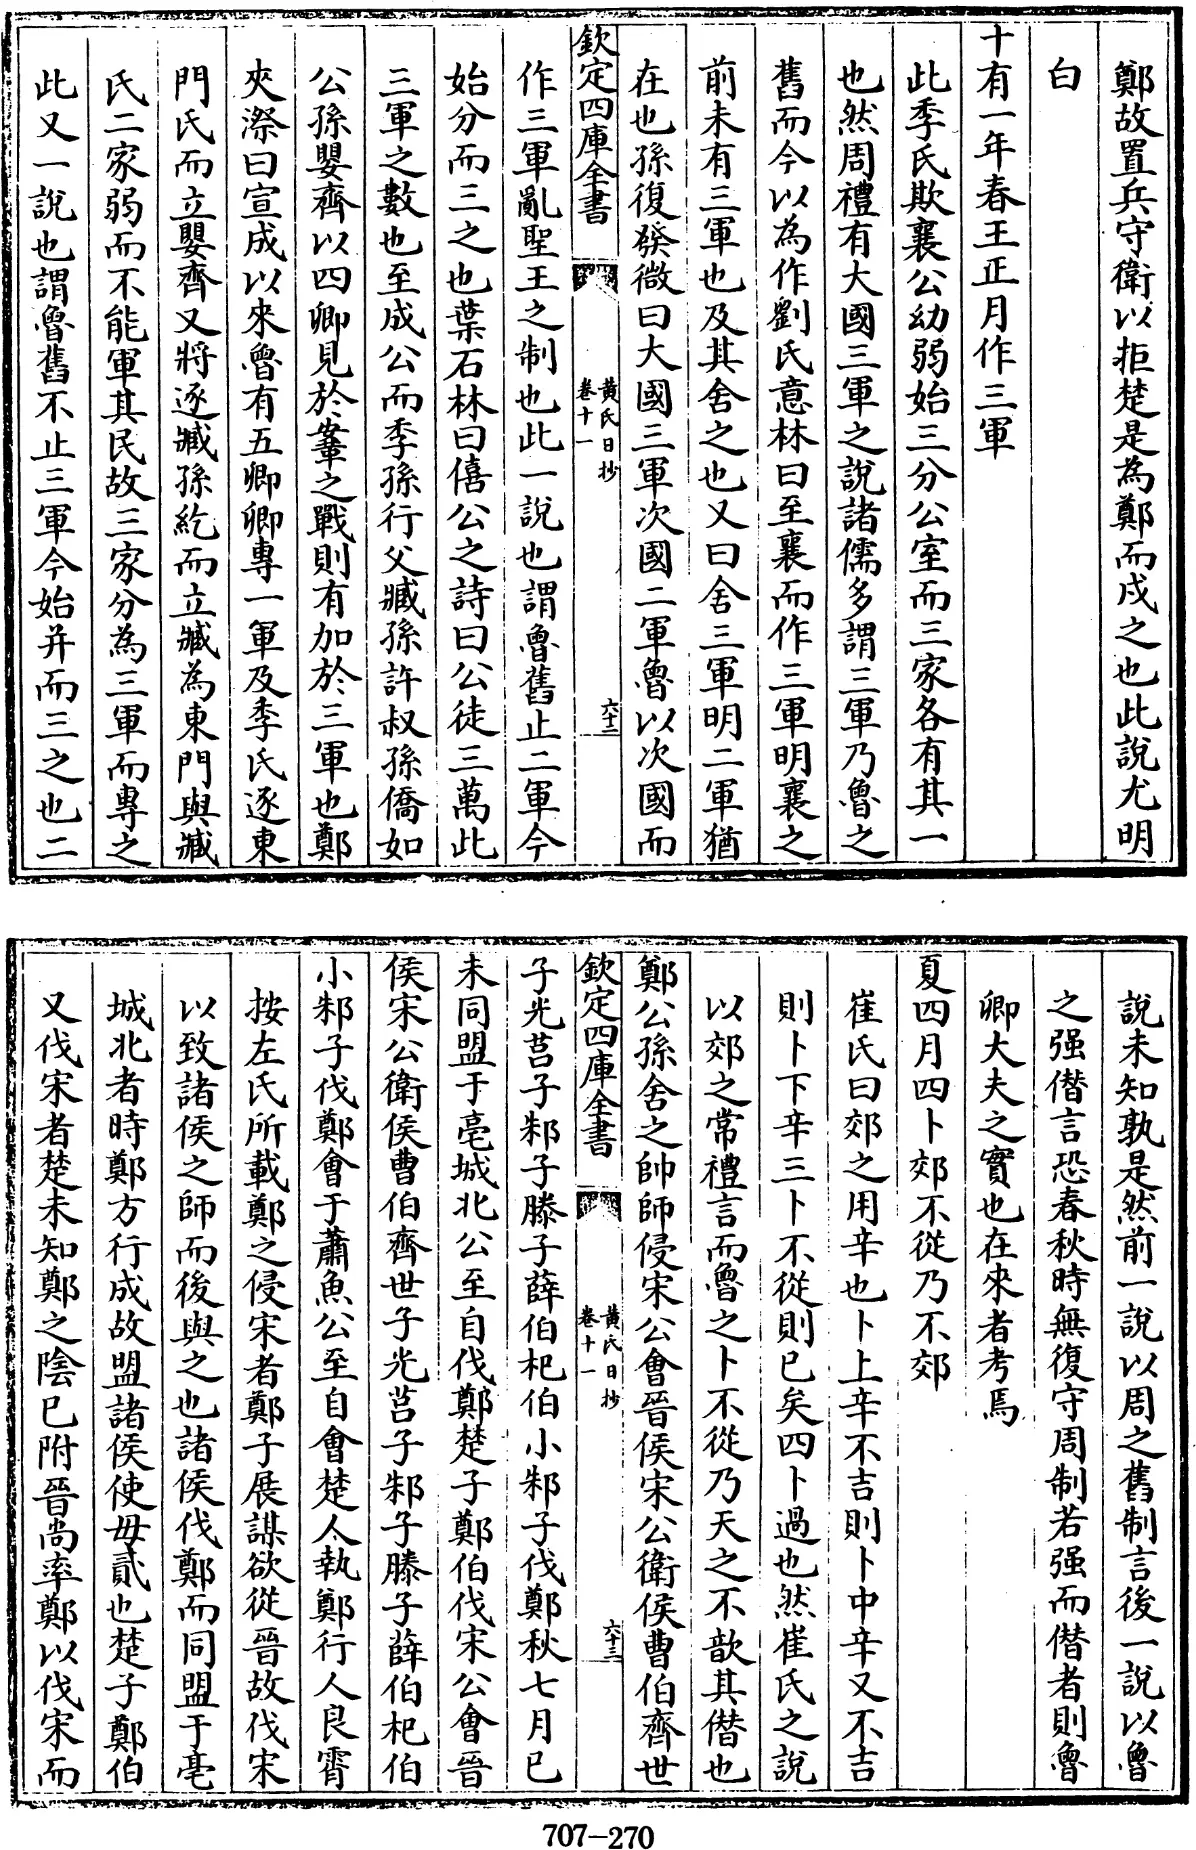 鄭故置兵守衛以拒楚是為鄭而戍之也此說尤明
白
十有一年春王正月作三軍
此季氏欺襄公幼弱始三分公室而三家各有其一
也然周禮有大國三軍之說諸儒多謂三軍乃魯之
舊而今以為作劉氏意林曰至襄而作三軍明襄之
前未有三軍也及其舍之也又曰舍三軍明二軍猶
在也孫復發微曰大國三軍次國二軍魯以次國而
欽定四庫全書
黃氏日抄
卷十一
六十二
作三軍亂聖王之制也此一說也謂魯舊止二軍今
始分而三之也葉石林曰僖公之詩曰公徒三萬此
三軍之數也至成公而季孫行父臧孫許叔孫僑如
公孫嬰齊以四卿見於鞌之戰則有加於三軍也鄭
夾漈曰宣成以來魯有五卿卿專一軍及季氏逐東
門氏而立嬰齊又將逐臧孫紇而立臧為東門與臧
氏二家弱而不能軍其民故三家分為三軍而專之
此又一說也謂魯舊不止三軍今始并而三之也二
說未知孰是然前一說以周之舊制言後一說以魯
之强僭言恐春秋時無復守周制若强而僭者則魯
卿大夫之實也在來者考焉
夏四月四卜郊不從乃不郊
崔氏曰郊之用辛也卜上辛不吉則卜中辛又不吉
則卜下辛三卜不從則已矣四卜過也然崔氏之說
以郊之常禮言而魯之卜不從乃天之不歆其僭也
鄭公孫舍之帥師侵宋公會晉侯宋公衛侯曹伯齊世
欽定四庫全書
黃氏日抄
卷十一
六十三
子光莒子邾子滕子薛伯杞伯小邾子伐鄭秋七月已
未同盟于亳城北公至自伐鄭楚子鄭伯伐宋公會晉
侯宋公衛侯曹伯齊世子光莒子邾子滕子薛伯杞伯
小邾子伐鄭會于蕭魚公至自會楚人執鄭行人良霄
按左氏所載鄭之侵宋者鄭子展謀欲從晉故伐宋
以致諸侯之師而後與之也諸侯伐鄭而同盟于亳
城北者時鄭方行成故盟諸侯使毋貳也楚子鄭伯
又伐宋者楚未知鄭之陰已附晉尚率鄭以伐宋而
707-270